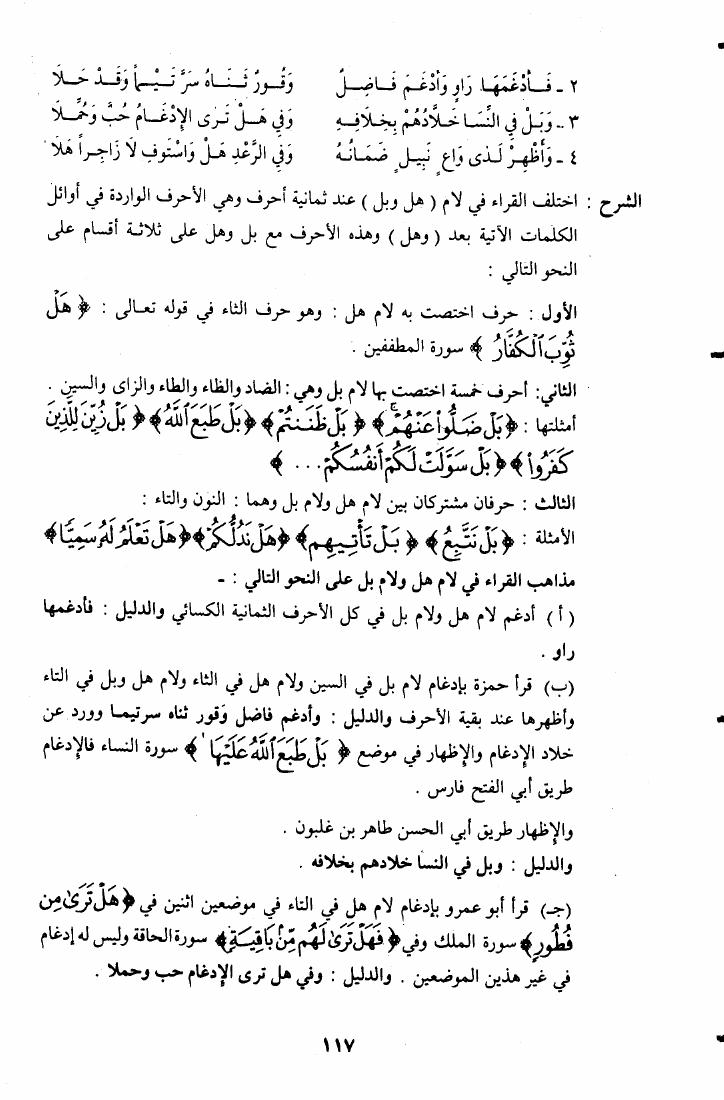 ٢ - فَـأَدْغَمَهَـا رَاوٍ وَأَدْغَـمَ فَـاضِـلٌ وَقُـورٌ ثَـنَـاهُ سَرَّ تَـيْـمـاً وَقَـدْ حَـلَا
٣ - وَبَـلْ فِي النِّسَـا خَـلَّادُهُمْ بِخِلَافِـهِ وَفِي هَـلْ تَـرَى الإِدْغَـامُ حُبَّ وَحُمِّـلَا
٤ - وَأَظْهِـرْ لَـدَى وَاعٍ نَبِيـلٍ ضَمَانُـهُ وَفِي الرَّعْدِ هَـلْ وَاسْتَوفِ لَا زَاجِـراً هَلَا
الشرح : اختلف القراء في لام ( هل وبل ) عند ثمانية أحرف وهي الأحرف الواردة في أوائل
الكلمات الآتية بعد ( وهل ) وهذه الأحرف مع بل وهل على ثلاثة أقسام على
النحو التالي :
الأول : حرف اختصت به لام هل : وهو حرف الثاء في قوله تعالى : ﴿ هَلْ
ثُوِّبَ ٱلْكُفَّارُ ﴾ سورة المطففين .
الثاني: أحرف خمسة اختصت بها لام بل وهي : الضاد والظاء والطاء والزاى والسين .
أمثلتها : ﴿ بَلْ ضَلُّوا۟ عَنْهُمْ ﴾ ﴿ بَلْ ظَنَنتُمْ ﴾ ﴿ بَلْ طَبَعَ ٱللَّهُ ﴾ ﴿ بَلْ زُيِّنَ لِلَّذِينَ
كَفَرُوا۟ ﴾ ﴿ بَلْ سَوَّلَتْ لَكُمْ أَنفُسُكُمْ ... ﴾
الثالث : حرفان مشتركان بين لام هل ولام بل وهما : النون والتاء :
الأمثلة : ﴿ بَلْ نَتَّبِعُ ﴾ ﴿ بَلْ تَأْتِيهِم ﴾ ﴿ هَلْ نَدُلُّكُمْ ﴾ ﴿ هَلْ تَعْلَمُ لَهُۥ سَمِيًّا ﴾
مذاهب القراء في لام هل ولام بل على النحو التالي : -
( أ ) أدغم لام هل ولام بل في كل الأحرف الثمانية الكسائي والدليل : فأدغمها
راو .
(ب) قرأ حمزة بإدغام لام بل في السين ولام هل في الثاء ولام هل وبل في التاء
وأظهرها عند بقية الأحرف والدليل : وأدغم فاضل وَقور ثناه سرتيما وورد عن
خلاد الإدغام والإظهار في موضع ﴿ بَلْ طَبَعَ ٱللَّهُ عَلَيْهَا ﴾ سورة النساء فالإدغام
طريق أبي الفتح فارس .
والإظهار طريق أبي الحسن طاهر بن غلبون .
والدليل : وبل في النسا خلادهم بخلافه .
(جـ) قرأ أبو عمرو بإدغام لام هل في التاء في موضعين اثنين في ﴿ هَلْ تَرَىٰ مِن
فُطُورٍ ﴾ سورة الملك وفي ﴿ فَهَلْ تَرَىٰ لَهُم مِّنۢ بَاقِيَةٍ ﴾ سورة الحاقة وليس له إدغام
في غير هذين الموضعين . والدليل : وفي هل ترى الإدغام حب وحملا .
١١٧